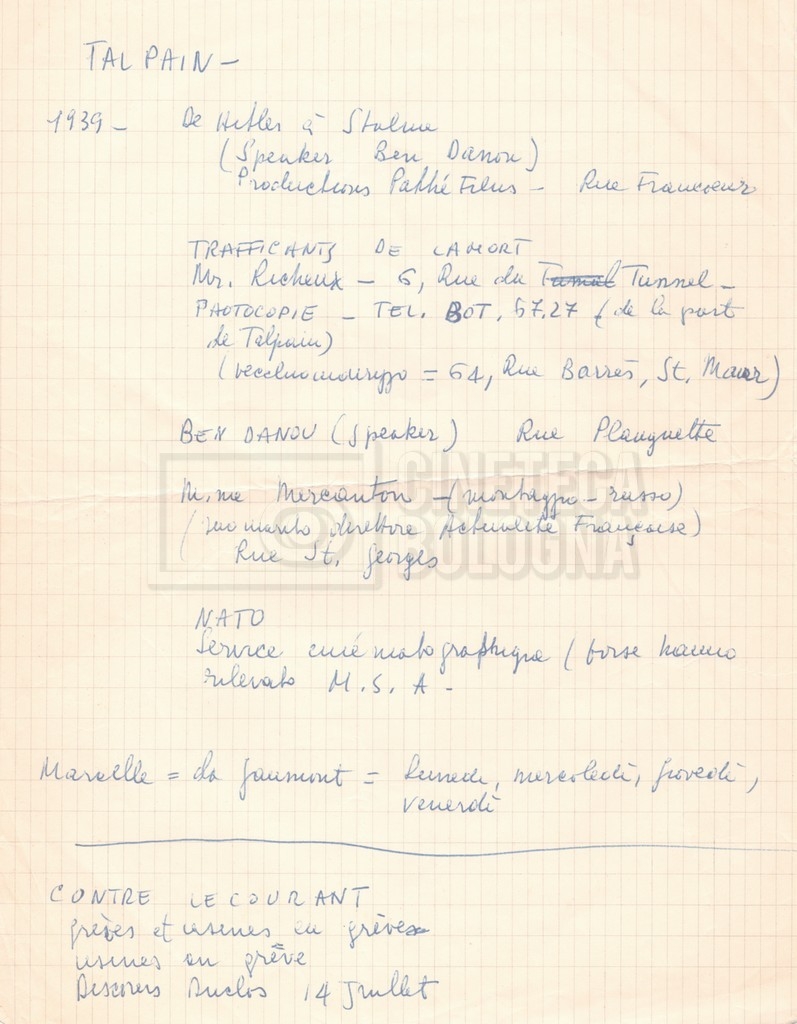 TALPAIN -
1939 - De Hitler à Staline
(Speaker Ben Danou)
Productions Pathé Films - Rue Francoeur
TRAFFICANTS DE LA MORT
Mr. Richeux - 6, Rue du Tunnel -
PHOTOCOPIE - TEL. BOT. 57.27 (de la part
de Talpain)
(vecchio indirizzo = 64, Rue Barrès, St. Maur)
BEN DANOU (Speaker) Rue Planquette
M.me Mercanton - (montaggio - russo)
(suo marito direttore Actualité Française)
Rue St. Georges
CINETECA
BOLOGNA
NATO
Service cinématographique (forse hanno
rilevato M.S.A -
Marcelle = da Gaumont = lunedì, mercoledì, giovedì,
venerdì
CONTRE LE COURANT
grèves et usines en grève
usines en grève
Discours Duclos 14 Juillet